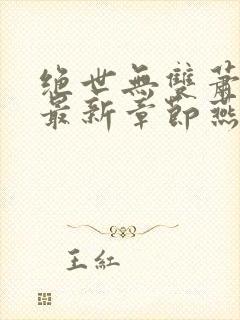 绝世無雙萧
最新章節燕
王紅